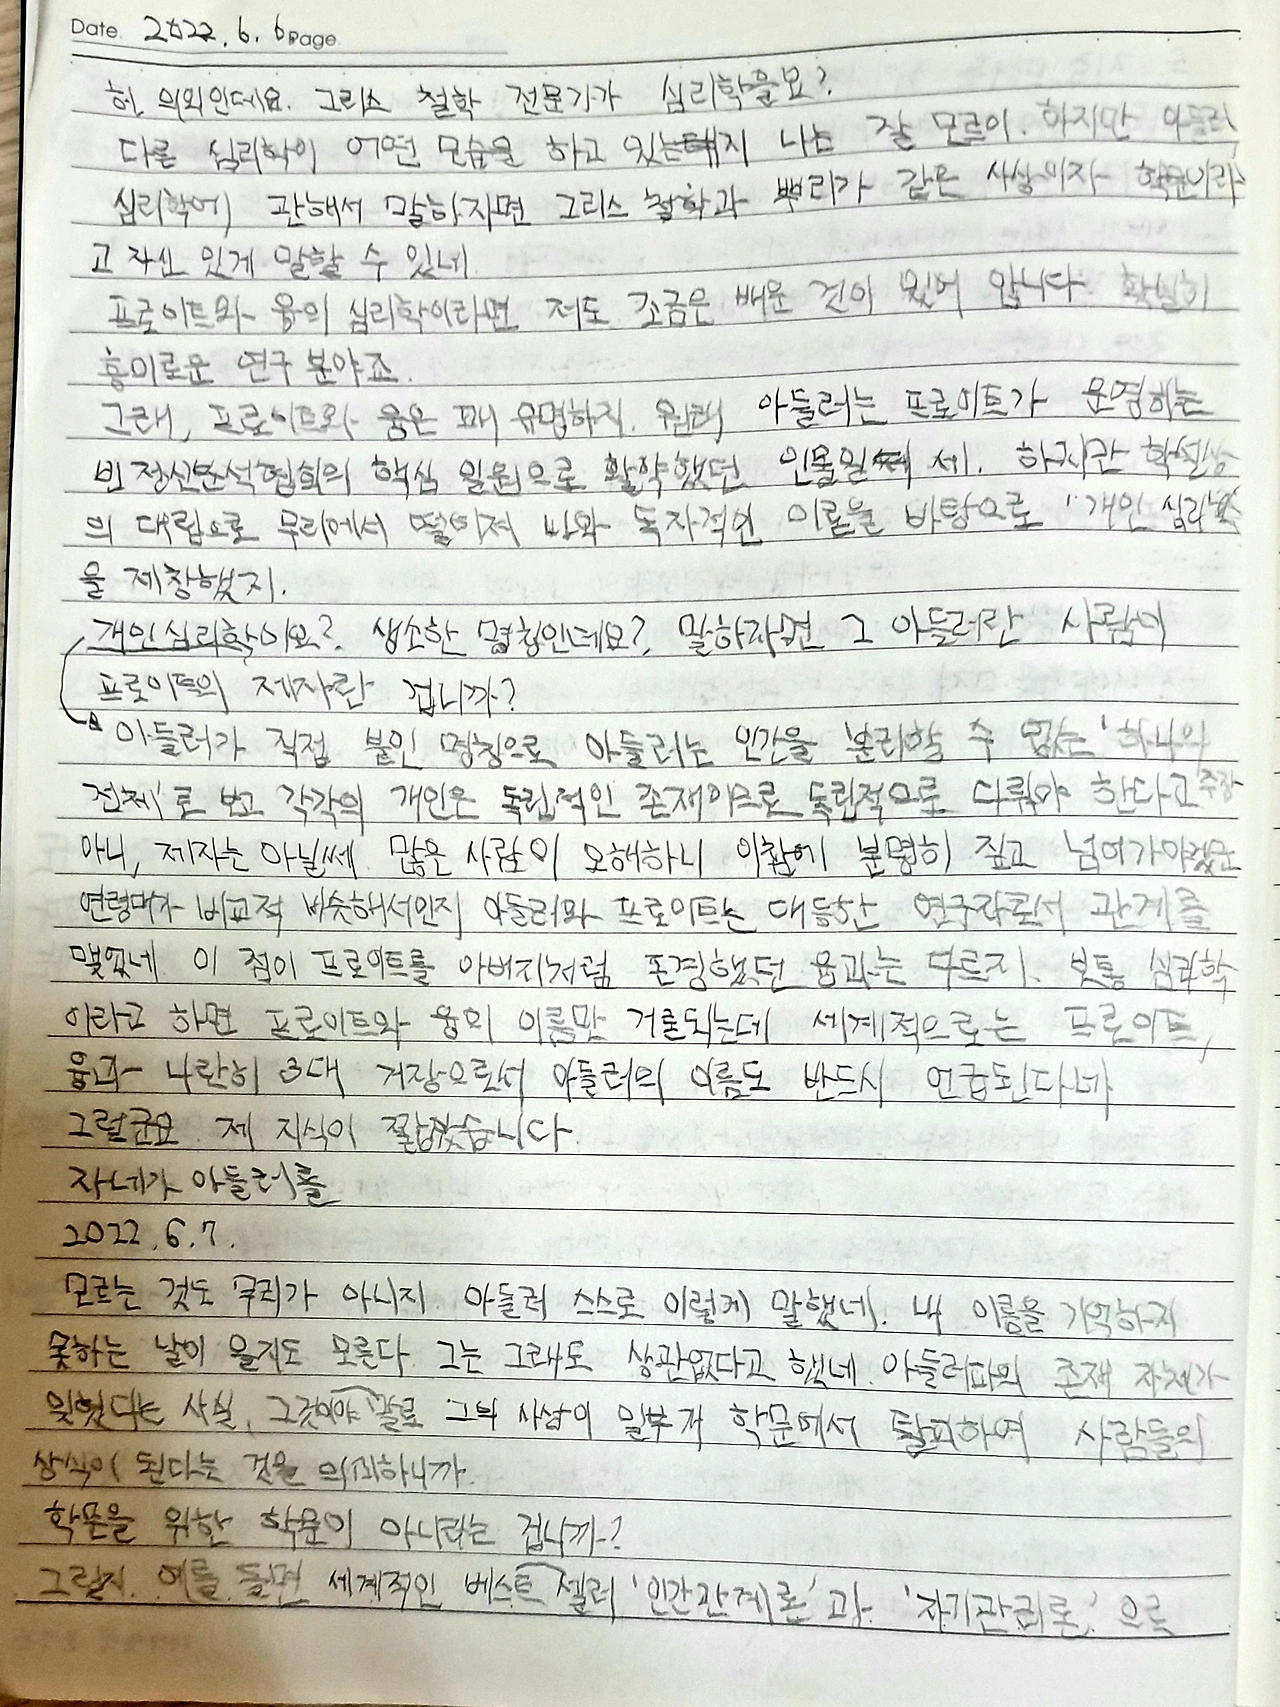 Date 2022.6.6 Page
허, 의외인데요. 그리스 철학 전문가가 심리학을요?
다른 심리학이 어떤 모습을 하고 있는지 나는 잘 모르이. 하지만 아들러
심리학에 관해서 말하자면 그리스 철학과 뿌리가 같은 사상이자 학문이라
고 자신 있게 말할 수 있네
프로이트와 융의 심리학이라면 저도 조금은 배운 것이 있어 압니다. 확실히
흥미로운 연구 분야죠.
그래, 프로이트와 융은 꽤 유명하지. 원래 아들러는 프로이트가 운영하는
빈 정신분석협회의 핵심 일원으로 활약했던 인물일세. 하지만 학설상
의 대립으로 무리에서 떨어져 나와 독자적인 이론을 바탕으로 "개인 심리학
을 제창했지.
개인심리학이요? 생소한 명칭인데요?, 말하자면 그 아들러란 사람이
프로이트의 제자란 겁니까?
아들러가 직접 붙인 명칭으로 아들러는 인간을 분리할 수 없는 '하나의
전체'로 보고 각각의 개인은 독립적인 존재이므로 독립적으로 다뤄야 한다고 주장
아니, 제자는 아닐쎄. 많은 사람이 오해하니 이참에 분명히 짚고 넘어가야겠군
연령마자 비교적 비슷해서인지 아들러와 프로이트는 대등한 연구자로서 관계를
맺었네 이 점이 프로이트를 아버지처럼 존경했던 융과는 다르지. 보통 심리학
이라고 하면 프로이트와 융의 이름만 거론되는데 세계적으로는 프로이트,
융과 나란히 3대 거장으로서 아들러의 이름도 반드시 언급된다네
그렇군요. 제 지식이 짧았습니다
자네가 아들러를
2022.6.7.
모르는 것도 무리가 아니지. 아들러 스스로 이렇게 말했네. 내 이름을 기억하지
못하는 날이 올지도 모른다. 그는 그래도 상관없다고 했네 아들러파의 존재 자체가
잊혔다는 사실, 그것이야 말로 그의 사상이 일부개 학문에서 탈피하여 사람들의
상식이 된다는 것을 의미하니까.
학문을 위한 학문이 아니라는 겁니까?
그렇지. 예를 들면 세계적인 베스트 셀러 '인간관계론'과 '자기관리론'으로